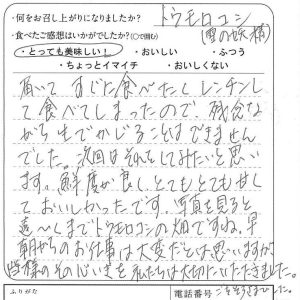 ・何をお召し上がりになりましたか？ トウモロコシ
・食べたご感想はいかがでしたか？(○で囲む) (雪の妖精)
・とっても美味しい！ ・おいしい ・ふつう
・ちょっとイマイチ ・おいしくない
届いて すぐに食べたく レンチンし
て食べてしまったので 残念な
がら生でかじることはできません
でした。次回はそれをしてみたいと思い
ます。鮮度が良く、とてもとても甘く
ておいしかったです。写真を見ると
遠〜くまでトウモロコシの畑ですね。早
朝からのお仕事は大変だとは思いますが
皆様のその心いきを私たちは大切にいただきました。
ふりがな 電話番号 ごちそうさまでした。